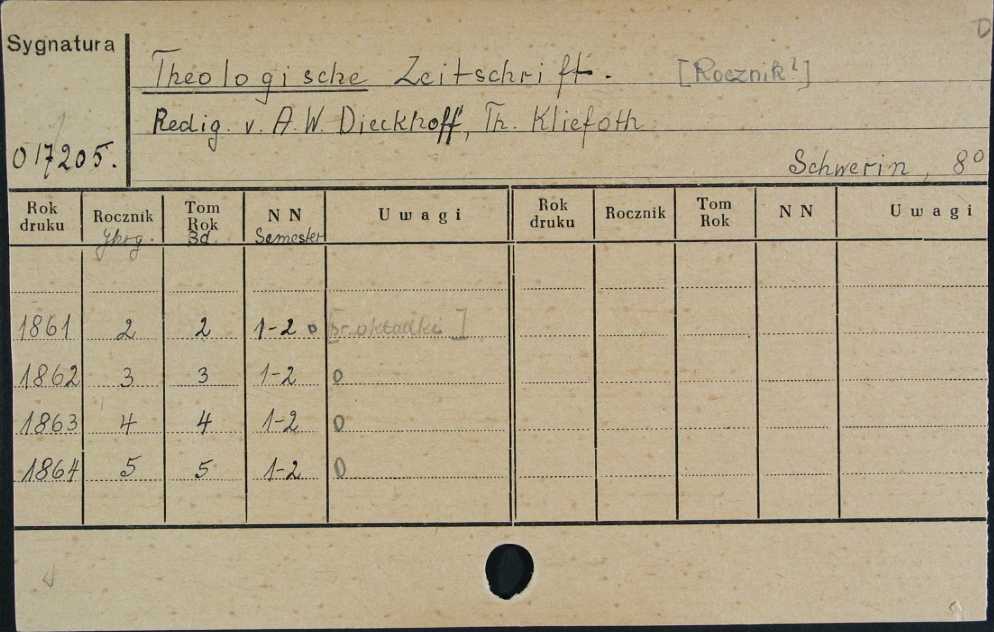 D
Sygnatura
Theologische Zeitschrift. [Rocznik]
Redig. v. A. W. Dieckhoff, Th. Kliefoth
017205.
Schwerin, 8°
Rok druku Rocznik Tom Rok N N Uwagi Rok druku Rocznik Tom Rok N N Uwagi
Jhrg. Bd. Semester
1861 2 2 1-2 o [br. okładki]
1862 3 3 1-2 o
1863 4 4 1-2 o
1864 5 5 1-2 o